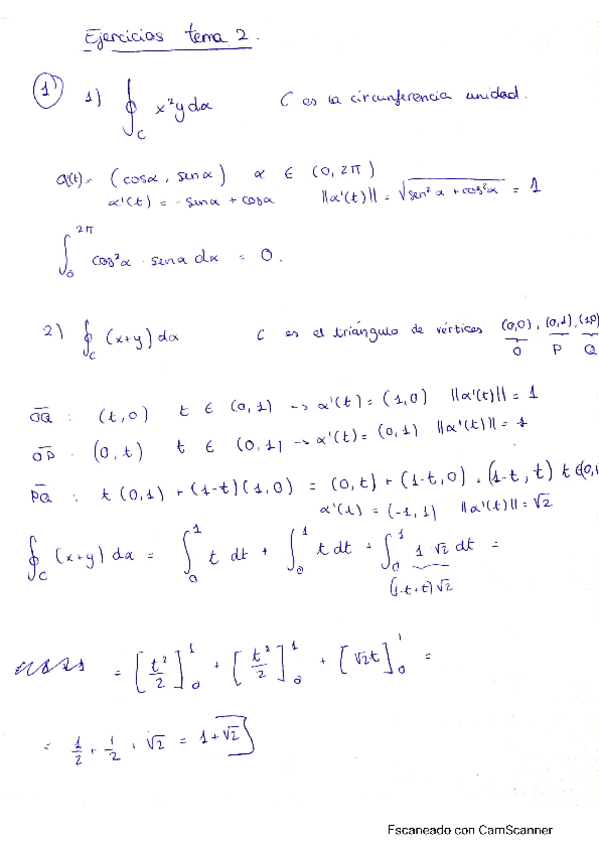 Ejercicios tema 2.
1) 1) ∮_C x²y dα C es la circunferencia unidad.
α(t) = (cosα, senα) α ∈ (0, 2π)
α'(t) = -senα + cosα ||α'(t)|| = √(sen²α + cos²α) = 1
∫_0^{2π} cos²α · senα dα = 0.
2) ∮_C (x+y) dα C es el triángulo de vértices (0,0), (0,1), (1,0)
O P Q
OQ : (t,0) t ∈ (0,1) -> α'(t) = (1,0) ||α'(t)|| = 1
OP : (0,t) t ∈ (0,1) -> α'(t) = (0,1) ||α'(t)|| = 1
PQ : t(0,1) + (1-t)(1,0) = (0,t) + (1-t,0) = (1-t, t) t ∈ (0,1
α'(t) = (-1,1) ||α'(t)|| = √2
∮_C (x+y) dα = ∫_0^1 t dt + ∫_0^1 t dt + ∫_0^1 1·√2 dt =
(1-t+t)√2
= [t²/2]_0^1 + [t²/2]_0^1 + [√2t]_0^1 =
= 1/2 + 1/2 + √2 = 1+√2
Escaneado con CamScanner